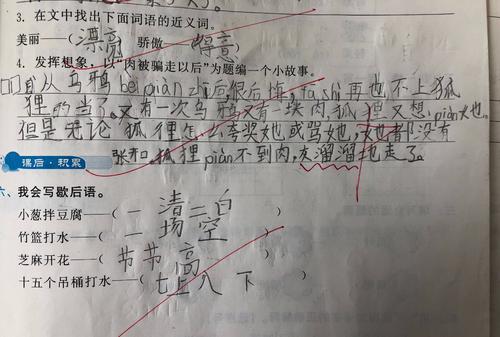 3. 在文中找出下面词语的近义词。
美丽——(漂亮) 骄傲——(得意)
4. 发挥想象,以“肉被骗走以后”为题编一个小故事。
自从乌鸦bei piàn zhī后,很后悔,fa shì再也不上狐
狸的当了。又有一次乌鸦又有一块肉,狐狸又想piàn她。
但是无论狐狸怎么夸奖她,或骂她,她都没有
张口。狐狸piàn不到肉,灰溜溜地走了。
课后·积累
六、我会写歇后语。
小葱拌豆腐——(一清二白)
竹篮打水——(一场空)
芝麻开花——(节节高)
十五个吊桶打水——(七上八下)